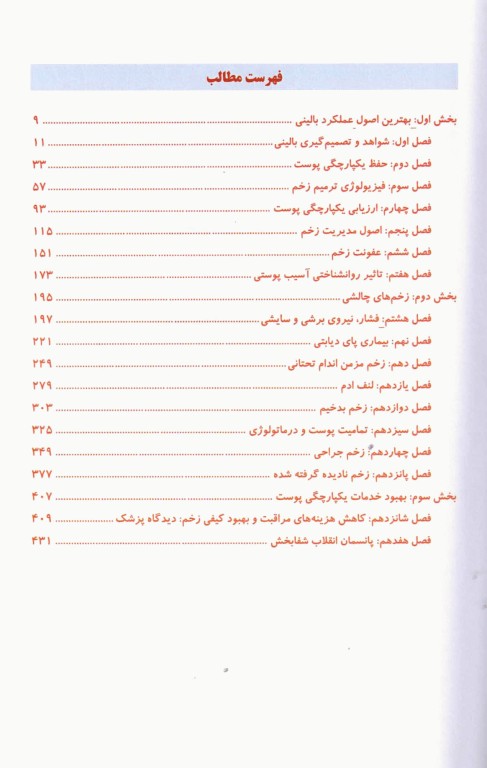 فهرست مطالب
بخش اول: بهترین اصول عملکرد بالینی ........ ۹
فصل اول: شواهد و تصمیم‌گیری بالینی ........ ۱۱
فصل دوم: حفظ یکپارچگی پوست ........ ۳۳
فصل سوم: فیزیولوژی ترمیم زخم ........ ۵۷
فصل چهارم: ارزیابی یکپارچگی پوست ........ ۹۳
فصل پنجم: اصول مدیریت زخم ........ ۱۱۵
فصل ششم: عفونت زخم ........ ۱۵۱
فصل هفتم: تاثیر روانشناختی آسیب پوستی ........ ۱۷۳
بخش دوم: زخم‌های چالشی ........ ۱۹۵
فصل هشتم: فشار، نیروی برشی و سایشی ........ ۱۹۷
فصل نهم: بیماری پای دیابتی ........ ۲۲۱
فصل دهم: زخم مزمن اندام تحتانی ........ ۲۴۹
فصل یازدهم: لنف ادم ........ ۲۷۹
فصل دوازدهم: زخم بدخیم ........ ۳۰۳
فصل سیزدهم: تمامیت پوست و درماتولوژی ........ ۳۲۵
فصل چهاردهم: زخم جراحی ........ ۳۴۹
فصل پانزدهم: زخم نادیده گرفته شده ........ ۳۷۷
بخش سوم: بهبود خدمات یکپارچگی پوست ........ ۴۰۷
فصل شانزدهم: کاهش هزینه‌های مراقبت و بهبود کیفی زخم: دیدگاه پزشک ........ ۴۰۹
فصل هفدهم: پانسمان انقلاب شفابخش ........ ۴۳۱